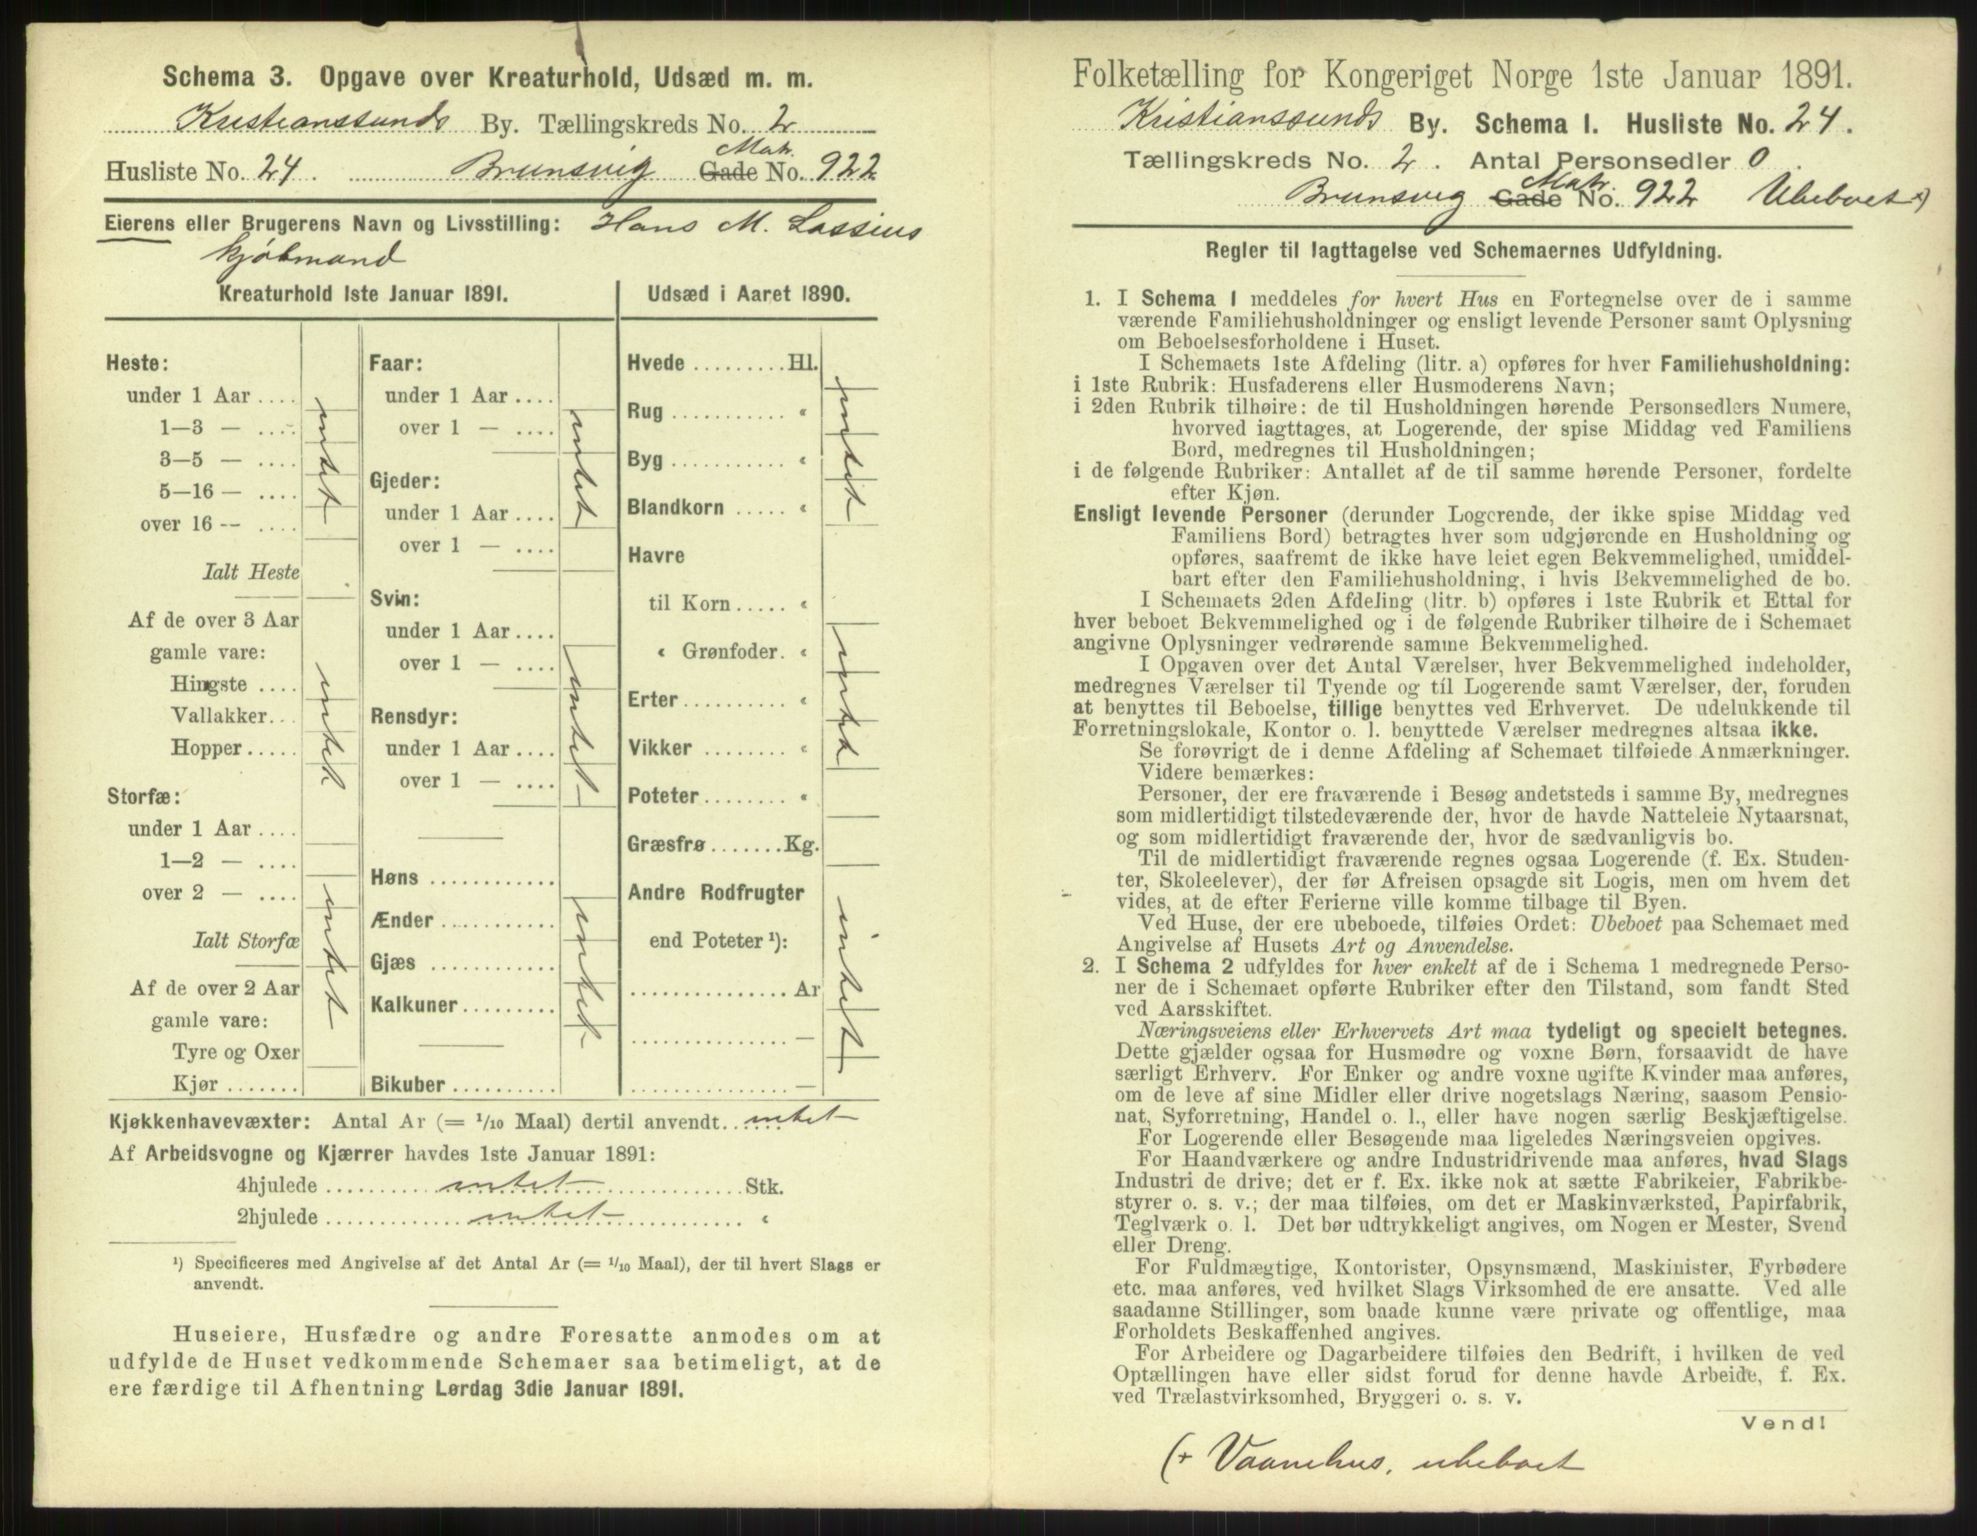 Schema 3. Opgave over Kreaturhold, Udsæd m. m.
Kristianssunds By. Tællingskreds No. 2
Matr.
Husliste No. 24. Brunsvig Gade No. 922
Eierens eller Brugerens Navn og Livsstilling: Hans M. Lossius
kjøbmand
Kreaturhold 1ste Januar 1891.
Heste:
under 1 Aar....
1—3 — ....
3—5 — ....
5—16 — ....
over 16 — ....
intet
Ialt Heste
Af de over 3 Aar
gamle vare:
Hingste ....
Vallakker...
Hopper.....
intet
Storfæ:
under 1 Aar....
1—2 — ....
over 2 — ....
Ialt Storfæ
intet
Af de over 2 Aar
gamle vare:
Tyre og Oxer
Kjør .......
Faar:
under 1 Aar....
over 1 — ....
intet
Gjeder:
under 1 Aar....
over 1 — ....
Svin:
under 1 Aar....
over 1 — ....
intet
Rensdyr:
under 1 Aar....
over 1 — ....
Høns ............
Ænder ...........
Gjæs ............
Kalkuner.........
intet
Bikuber..........
Udsæd i Aaret 1890.
Hvede .........Hl.
Rug ........... "
Byg ........... "
Blandkorn ..... "
intet
Havre
til Korn..... "
" Grønfoder. "
Erter.......... "
Vikker ........ "
intet
Poteter........ "
Græsfrø.......Kg.
Andre Rodfrugter
end Poteter ¹):
................ Ar
................ —
................ —
intet
Kjøkkenhavevæxter: Antal Ar (= 1/10 Maal) dertil anvendt.. intet
Af Arbeidsvogne og Kjærrer havdes 1ste Januar 1891:
4hjulede ........ intet ........ Stk.
2hjulede ........ intet ........ "
¹) Specificeres med Angivelse af det Antal Ar (= 1/10 Maal), der til hvert Slags er
anvendt.
Huseiere, Husfædre og andre Foresatte anmodes om at
udfylde de Huset vedkommende Schemaer saa betimeligt, at de
ere færdige til Afhentning Lørdag 3die Januar 1891.
Folketælling for Kongeriget Norge 1ste Januar 1891.
Kristianssunds By. Schema I. Husliste No. 24.
Tællingskreds No. 2. Antal Personsedler 0.
Matr.
Brunsvig Gade No. 922 Ubeboet +)
Regler til Iagttagelse ved Schemaernes Udfyldning.
1. I Schema I meddeles for hvert Hus en Fortegnelse over de i samme
værende Familiehusholdninger og ensligt levende Personer samt Oplysning
om Beboelsesforholdene i Huset.
I Schemaets 1ste Afdeling (litr. a) opføres for hver Familiehusholdning:
i 1ste Rubrik: Husfaderens eller Husmoderens Navn;
i 2den Rubrik tilhøire: de til Husholdningen hørende Personsedlers Numere,
hvorved iagttages, at Logerende, der spise Middag ved Familiens
Bord, medregnes til Husholdningen;
i de følgende Rubriker: Antallet af de til samme hørende Personer, fordelte
efter Kjøn.
Ensligt levende Personer (derunder Logerende, der ikke spise Middag ved
Familiens Bord) betragtes hver som udgjørende en Husholdning og
opføres, saafremt de ikke have leiet egen Bekvemmelighed, umiddel-
bart efter den Familiehusholdning, i hvis Bekvemmelighed de bo.
I Schemaets 2den Afdeling (litr. b) opføres i 1ste Rubrik et Ettal for
hver beboet Bekvemmelighed og i de følgende Rubriker tilhøire de i Schemaet
angivne Oplysninger vedrørende samme Bekvemmelighed.
I Opgaven over det Antal Værelser, hver Bekvemmelighed indeholder,
medregnes Værelser til Tyende og til Logerende samt Værelser, der, foruden
at benyttes til Beboelse, tillige benyttes ved Erhvervet. De udelukkende til
Forretningslokale, Kontor o. l. benyttede Værelser medregnes altsaa ikke.
Se forøvrigt de i denne Afdeling af Schemaet tilføiede Anmærkninger.
Videre bemærkes:
Personer, der ere fraværende i Besøg andetsteds i samme By, medregnes
som midlertidigt tilstedeværende der, hvor de havde Natteleie Nytaarsnat,
og som midlertidigt fraværende der, hvor de sædvanligvis bo.
Til de midlertidigt fraværende regnes ogsaa Logerende (f. Ex. Studen-
ter, Skoleelever), der før Afreisen opsagde sit Logis, men om hvem det
vides, at de efter Ferierne ville komme tilbage til Byen.
Ved Huse, der ere ubeboede, tilføies Ordet: Ubeboet paa Schemaet med
Angivelse af Husets Art og Anvendelse.
2. I Schema 2 udfyldes for hver enkelt af de i Schema 1 medregnede Perso-
ner de i Schemaet opførte Rubriker efter den Tilstand, som fandt Sted
ved Aarsskiftet.
Næringsveiens eller Erhvervets Art maa tydeligt og specielt betegnes.
Dette gjælder ogsaa for Husmødre og voxne Børn, forsaavidt de have
særligt Erhverv. For Enker og andre voxne ugifte Kvinder maa anføres,
om de leve af sine Midler eller drive nogetslags Næring, saasom Pensio-
nat, Syforretning, Handel o. l., eller have nogen særlig Beskjæftigelse.
For Logerende eller Besøgende maa ligeledes Næringsveien opgives.
For Haandværkere og andre Industridrivende maa anføres, hvad Slags
Industri de drive; det er f. Ex. ikke nok at sætte Fabrikeier, Fabrikbe-
styrer o. s. v.; der maa tilføies, om det er Maskinværksted, Papirfabrik,
Teglværk o. l. Det bør udtrykkeligt angives, om Nogen er Mester, Svend
eller Dreng.
For Fuldmægtige, Kontorister, Opsynsmænd, Maskinister, Fyrbødere
etc. maa anføres, ved hvilket Slags Virksomhed de ere ansatte. Ved alle
saadanne Stillinger, som baade kunne være private og offentlige, maa
Forholdets Beskaffenhed angives.
For Arbeidere og Dagarbeidere tilføies den Bedrift, i hvilken de ved
Optællingen have eller sidst forud for denne havde Arbeide, f. Ex.
ved Trælastvirksomhed, Bryggeri o. s. v.
Vend!
(+ Vaanehus, ubeboet